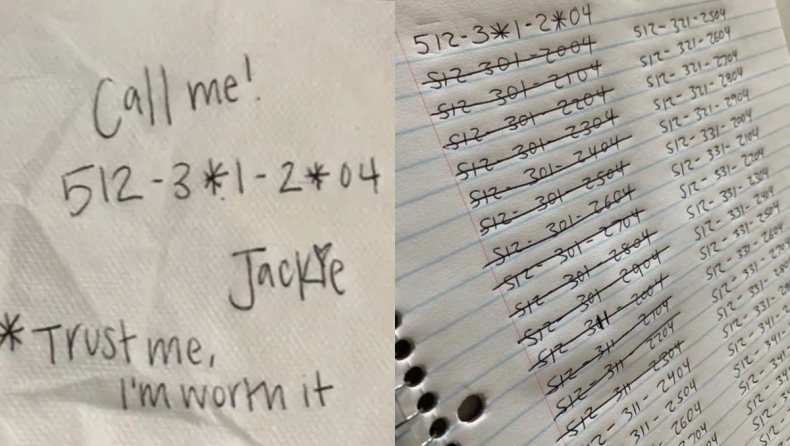 Call me!
512-3*1-2*04
Jackie
*Trust me,
I'm worth it
512-3*1-2*04
512-301-2004
512-301-2104
512-301-2204
512-301-2304
512-301-2404
512-301-2504
512-301-2604
512-301-2704
512-301-2804
512-301-2904
512-311-2004
512-311-2104
512-311-2204
512-311-2304
512-311-2404
-311-2504
2604
704
512-321-2504
512-321-2604
512-321-2704
512-321-2804
512-321-2904
512-331-2004
512-331-2104
512-331-2204
512-331-2304
512-331-2404
512-331-2504
512-331-2604
512-331-
512-331-
512-331-
512-341-
512-341-
512-341